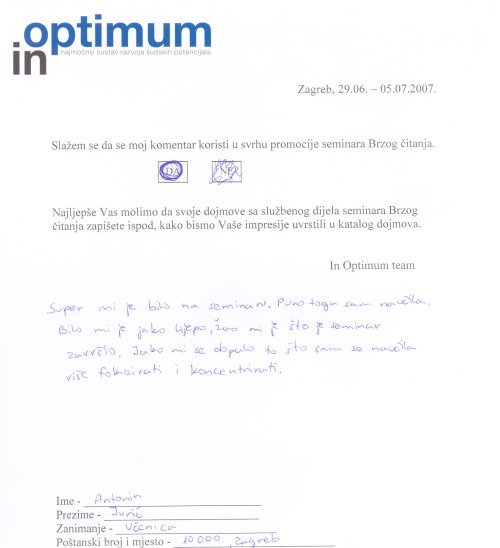 in optimum
najmoćniji sustav razvoja ljudskih potencijala
Zagreb, 29.06. – 05.07.2007.
Slažem se da se moj komentar koristi u svrhu promocije seminara Brzog čitanja.
DA NE
Najljepše Vas molimo da svoje dojmove sa službenog dijela seminara Brzog
čitanja zapišete ispod, kako bismo Vaše impresije uvrstili u katalog dojmova.
In Optimum team
Super mi je bilo na seminaru. Puno toga sam naučila.
Bilo mi je jako lijepo, žao mi je što je seminar
završio. Jako mi se dopalo to što sam se naučila
više fokusirati i koncentrirati.
Ime - Antonin
Prezime - Jurić
Zanimanje - Učenica
Poštanski broj i mjesto - 10 000, Zagreb